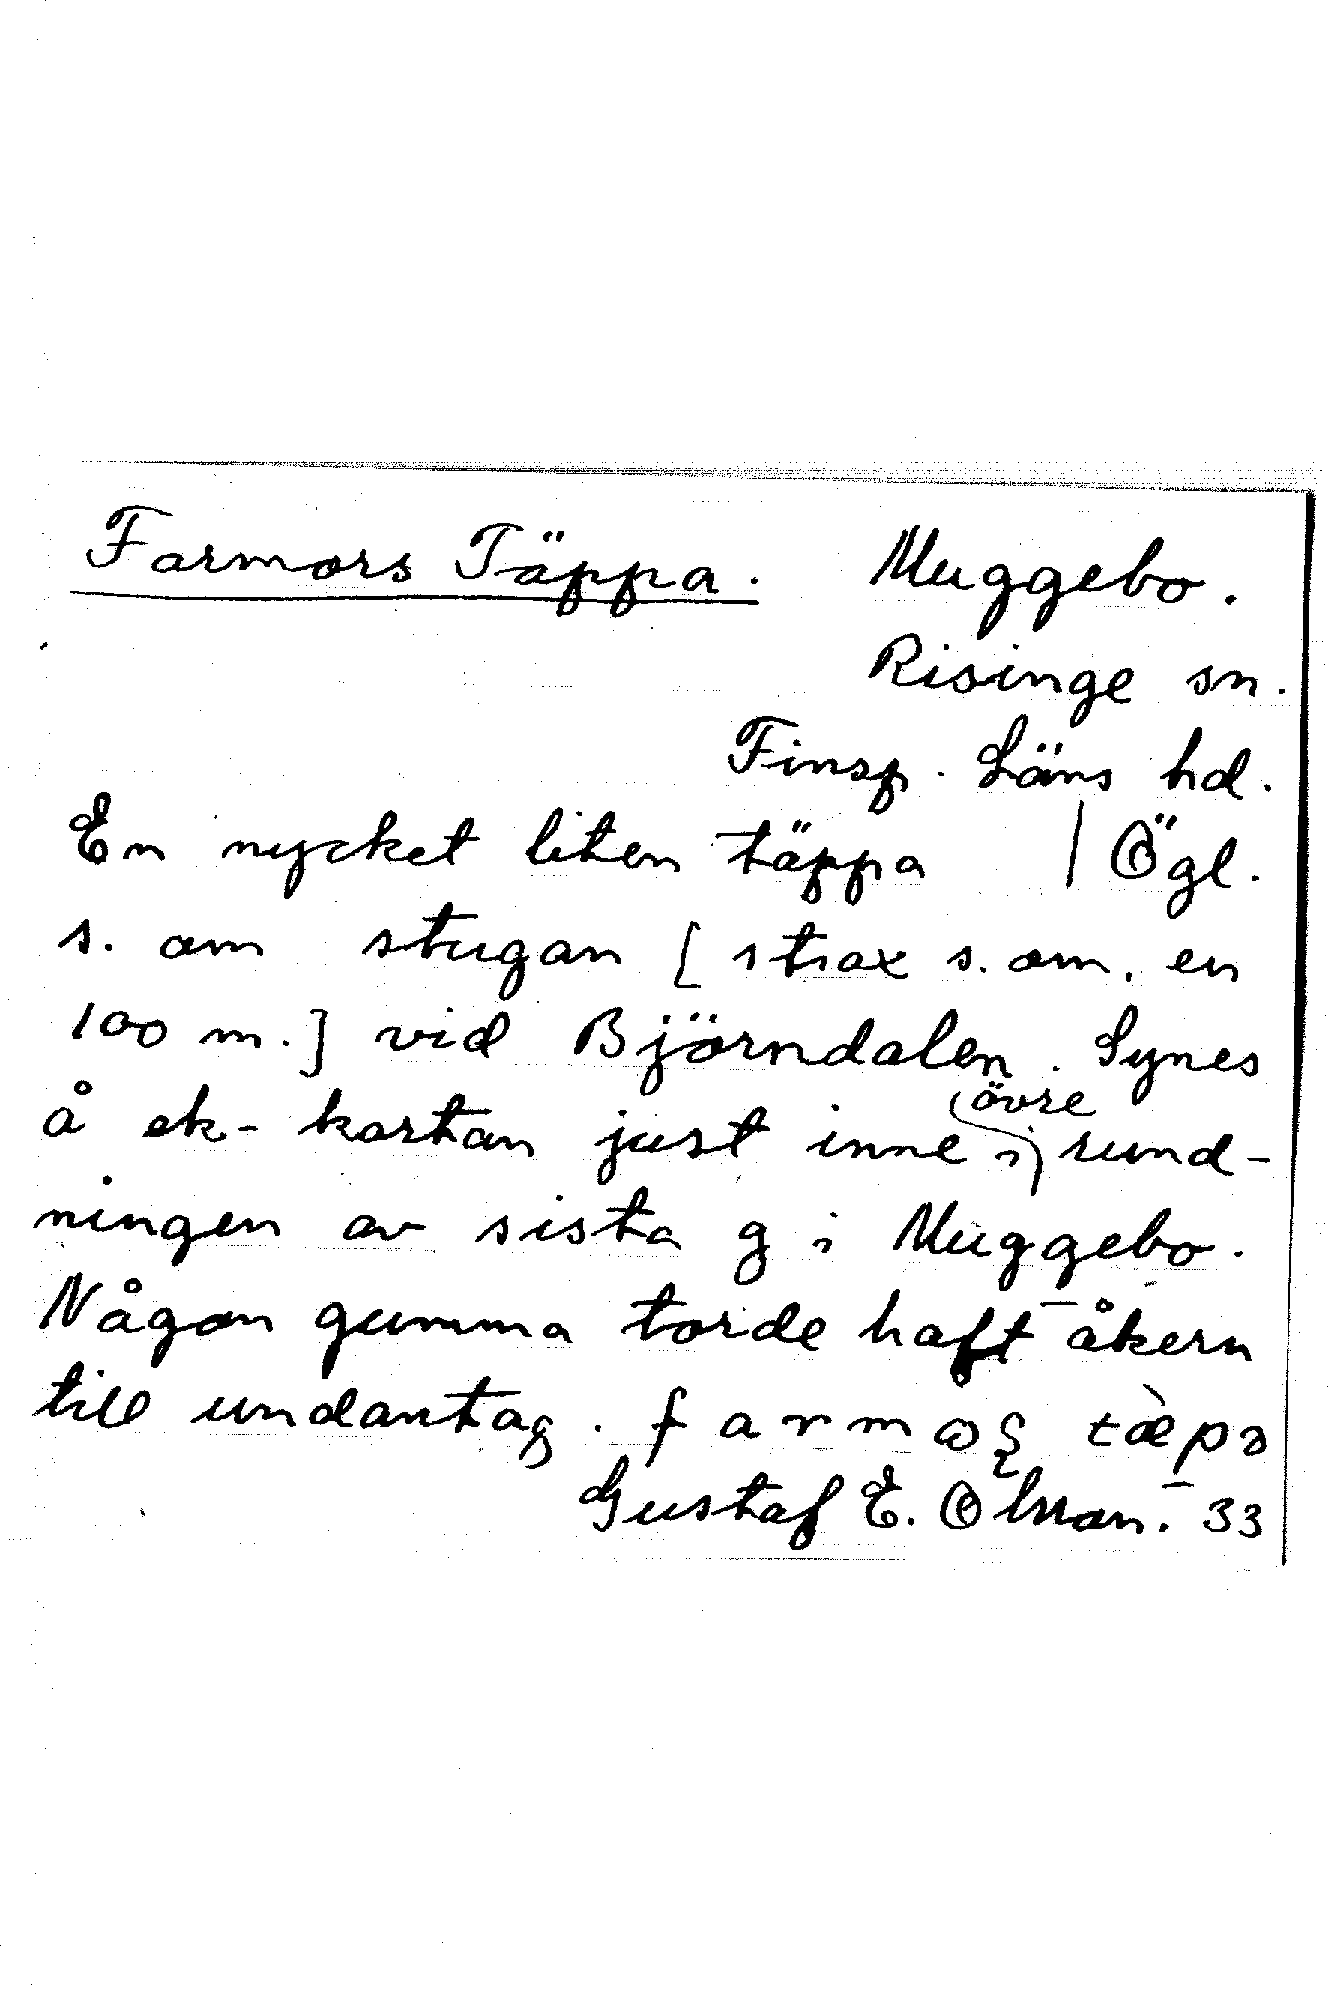 Farmors Täppa. Muggebo.
Risinge sn.
Finsp. Läns hd.
En mycket liten täppa | Ögl.
s. om stugan [strax s. om, en
100 m.] vid Björndalen. Synes
å ek-kartan just inne i övre rund-
ningen av sista g i Muggebo.
Någon gumma torde haft åkern
till undantag. farmoʂ tæ̀pə
Gustaf E. Olsson. 33